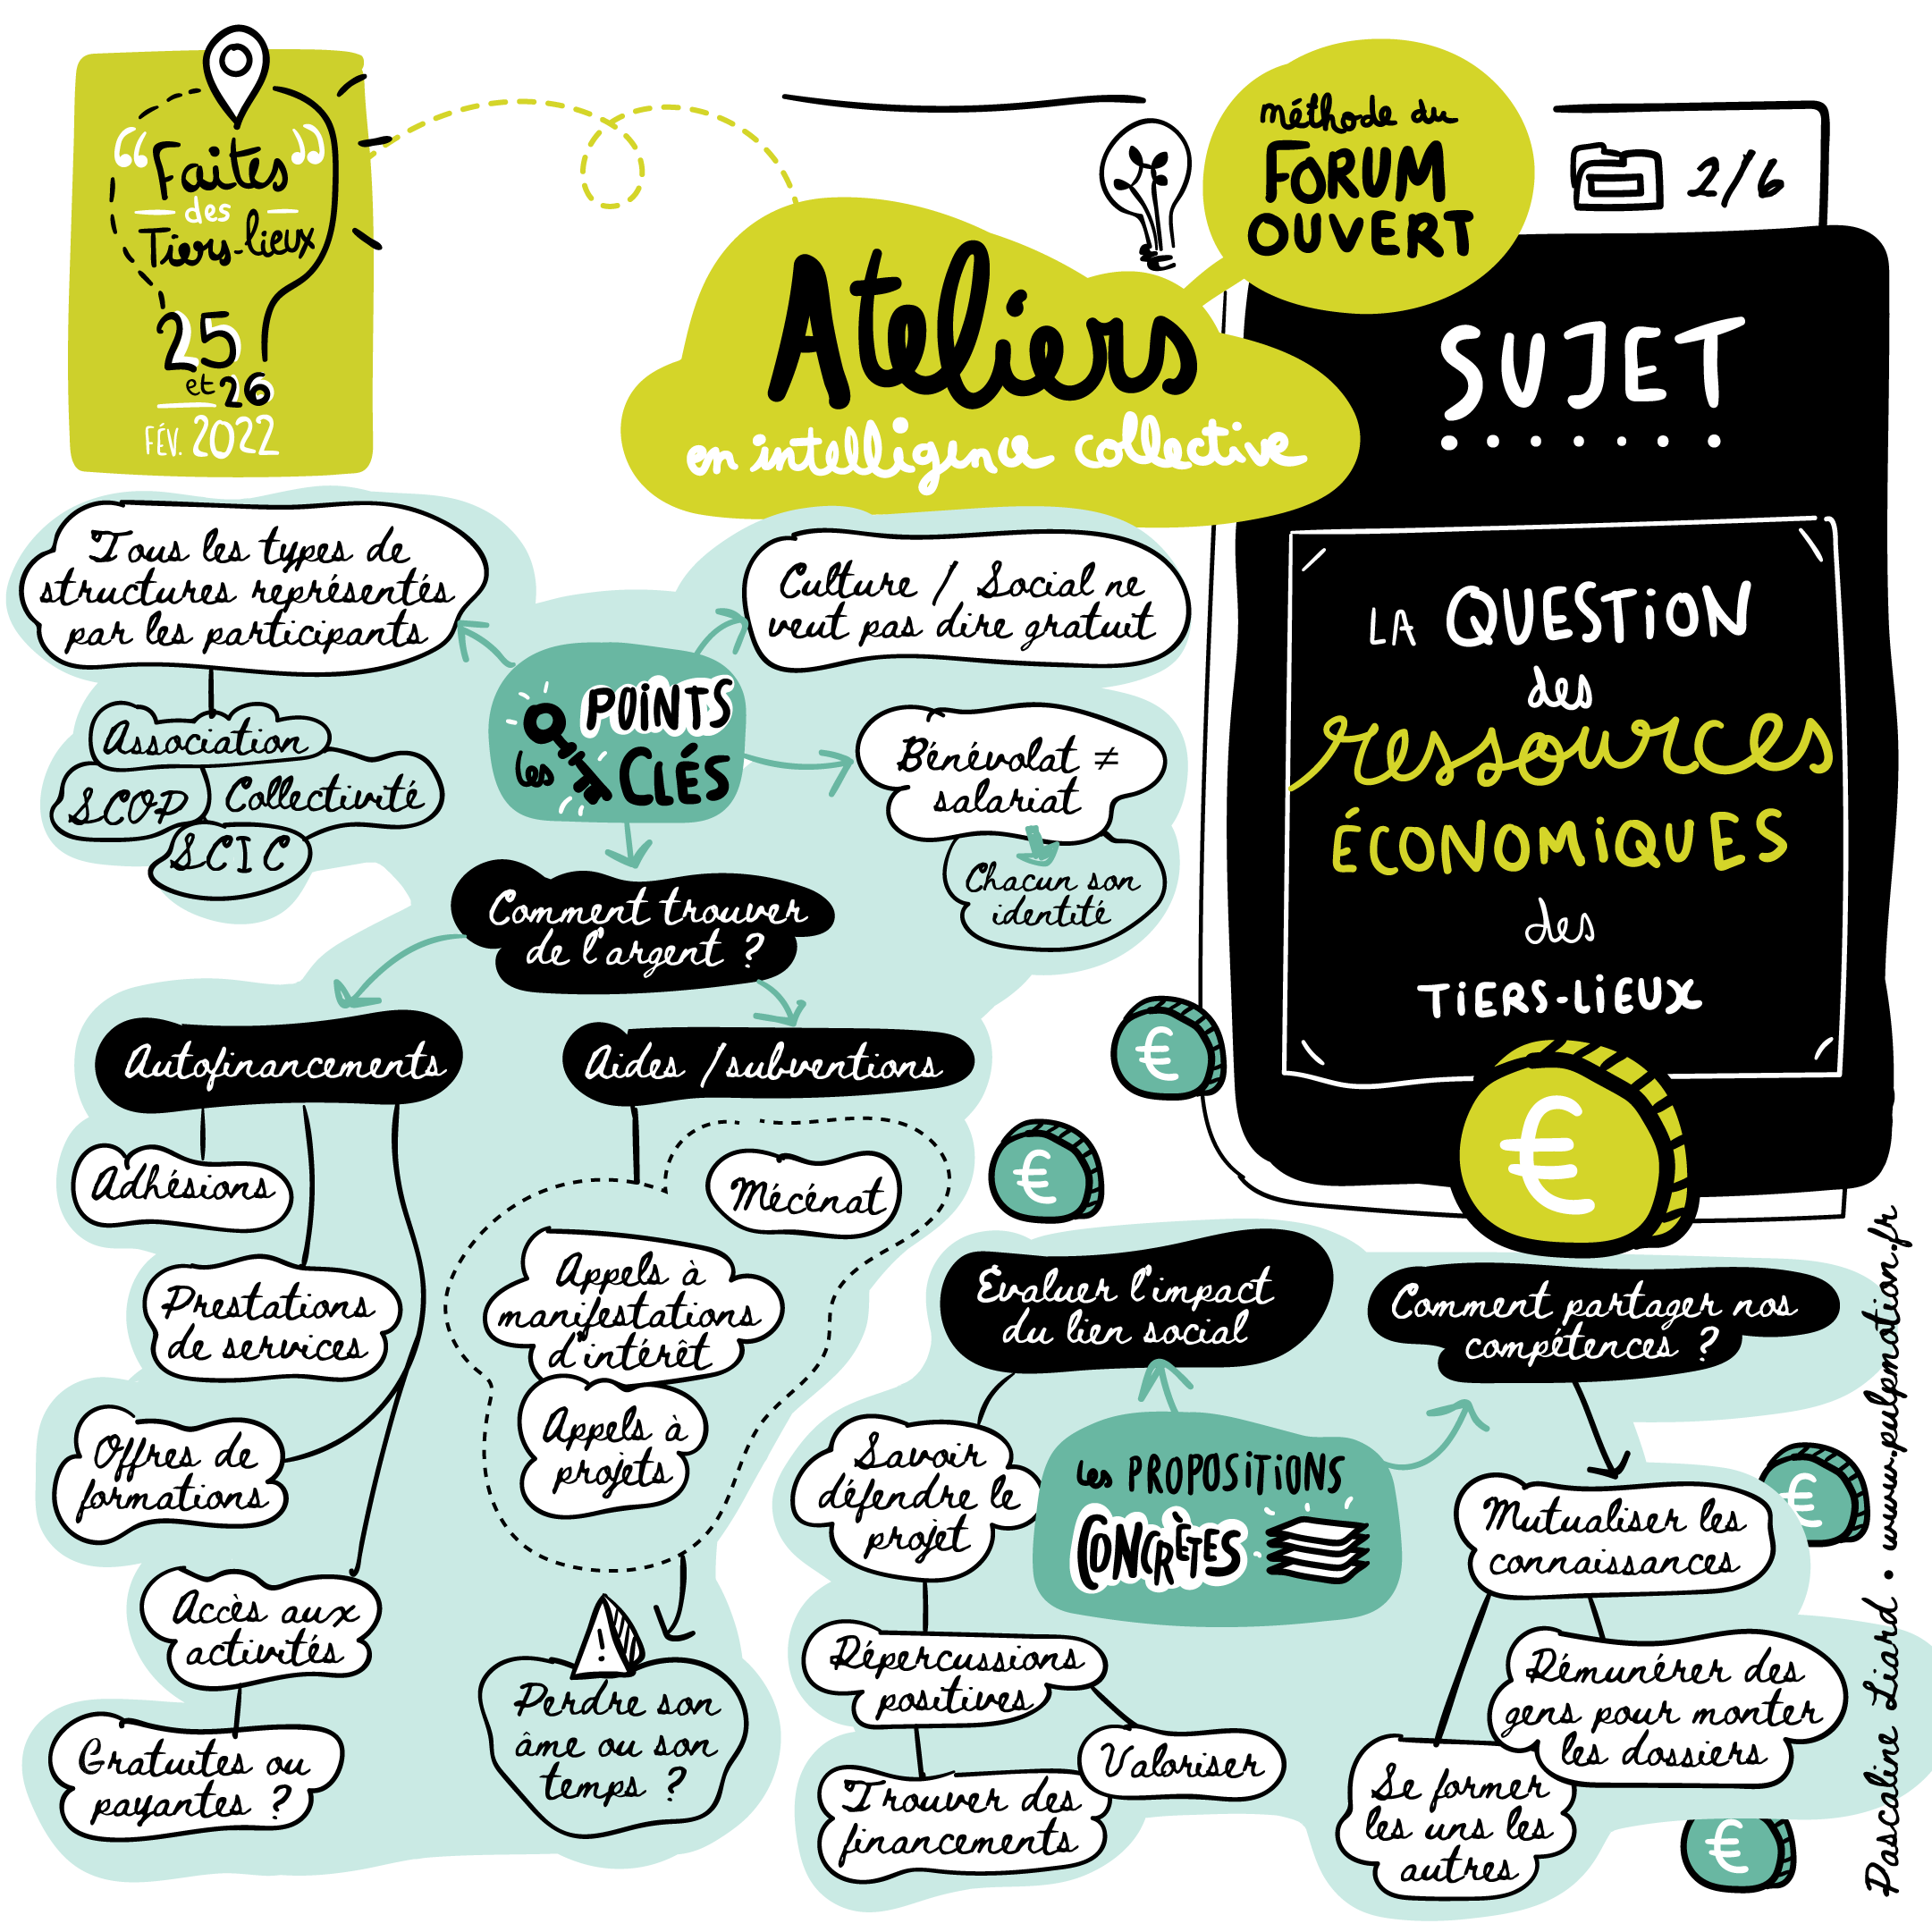 “Faites”
des
Tiers-lieux
25
et 26
FÉV. 2022
Ateliers
en intelligence collective
méthode du
FORUM
OUVERT
2/6
SUJET
LA QUESTION
des
ressources
ÉCONOMIQUES
des
TIERS-LIEUX
€
€
€
les POINTS
CLÉS
Tous les types de
structures représentés
par les participants
Association
SCOP
Collectivité
SCIC
Culture / Social ne
veut pas dire gratuit
Bénévolat ≠
salariat
Chacun son
identité
Comment trouver
de l'argent ?
Autofinancements
Adhésions
Prestations
de services
Offres de
formations
Accès aux
activités
Gratuites ou
payantes ?
Aides / subventions
Mécénat
Appels à
manifestations
d'intérêt
Appels à
projets
!
Perdre son
âme ou son
temps ?
les PROPOSITIONS
CONCRÈTES
Évaluer l'impact
du lien social
Savoir
défendre le
projet
Répercussions
positives
Valoriser
Trouver des
financements
Comment partager nos
compétences ?
Mutualiser les
connaissances
€
Rémunérer des
gens pour monter
les dossiers
Se former
les uns les
autres
€
Pascaline Liard • www.pulpmotion.fr